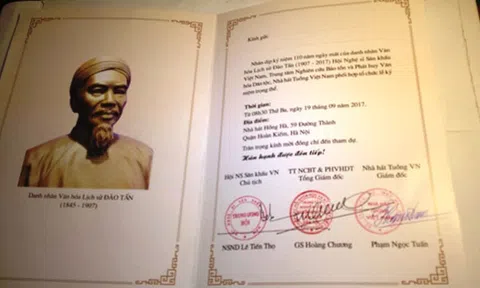 Danh nhân Văn hóa Lịch sử ĐÀO TẤN
(1845 - 1907)
Kính gửi:
Nhân dịp kỷ niệm 110 năm ngày mất của danh nhân Văn
hóa Lịch sử Đào Tấn (1907 - 2017) Hội Nghệ sĩ Sân khấu
Việt Nam, Trung tâm Nghiên cứu Bảo tồn và Phát huy Văn
hóa Dân tộc, Nhà hát Tuồng Việt Nam phối hợp tổ chức lễ kỷ
niệm trọng thể.
Thời gian:
Từ 08h30 Thứ Ba, ngày 19 tháng 09 năm 2017.
Địa điểm:
Nhà hát Hồng Hà, 59 Đường Thành
Quận Hoàn Kiếm, Hà Nội
Trân trọng kính mời đồng chí đến tham dự.
Hân hạnh được đón tiếp!
Hội NS Sân khấu VN
Chủ tịch
TT NCBT & PHVHDT
Tổng Giám đốc
Nhà hát Tuồng VN
Giám đốc
TRUNG ƯƠNG
HỘI
NSND Lê Tiến Thọ
GS Hoàng Chương
Phạm Ngọc Tuấn